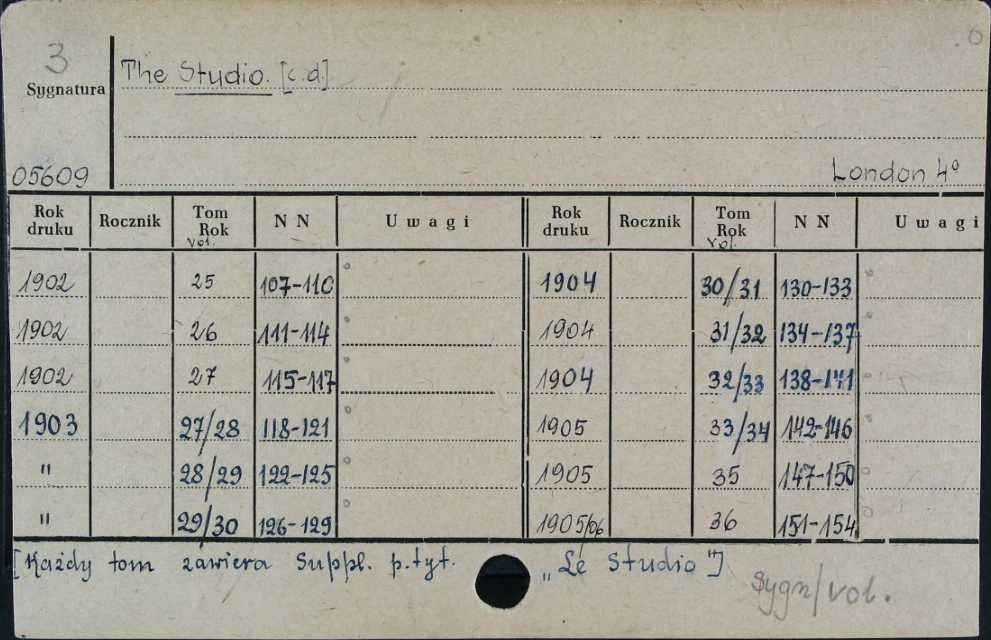 3
Sygnatura
The Studio. [c.d.]
05609
London 4°
Rok druku Rocznik Tom Rok vol. N N Uwagi Rok druku Rocznik Tom Rok vol. N N Uwagi
1902 25 107-110 1904 30/31 130-133
1902 26 111-114 1904 31/32 134-137
1902 27 115-117 1904 32/33 138-141
1903 27/28 118-121 1905 33/34 142-146
" 28/29 122-125 1905 35 147-150
" 29/30 126-129 1905/06 36 151-154
[Każdy tom zawiera Suppl. p.tyt. „Le Studio"]
Sygn/vol.